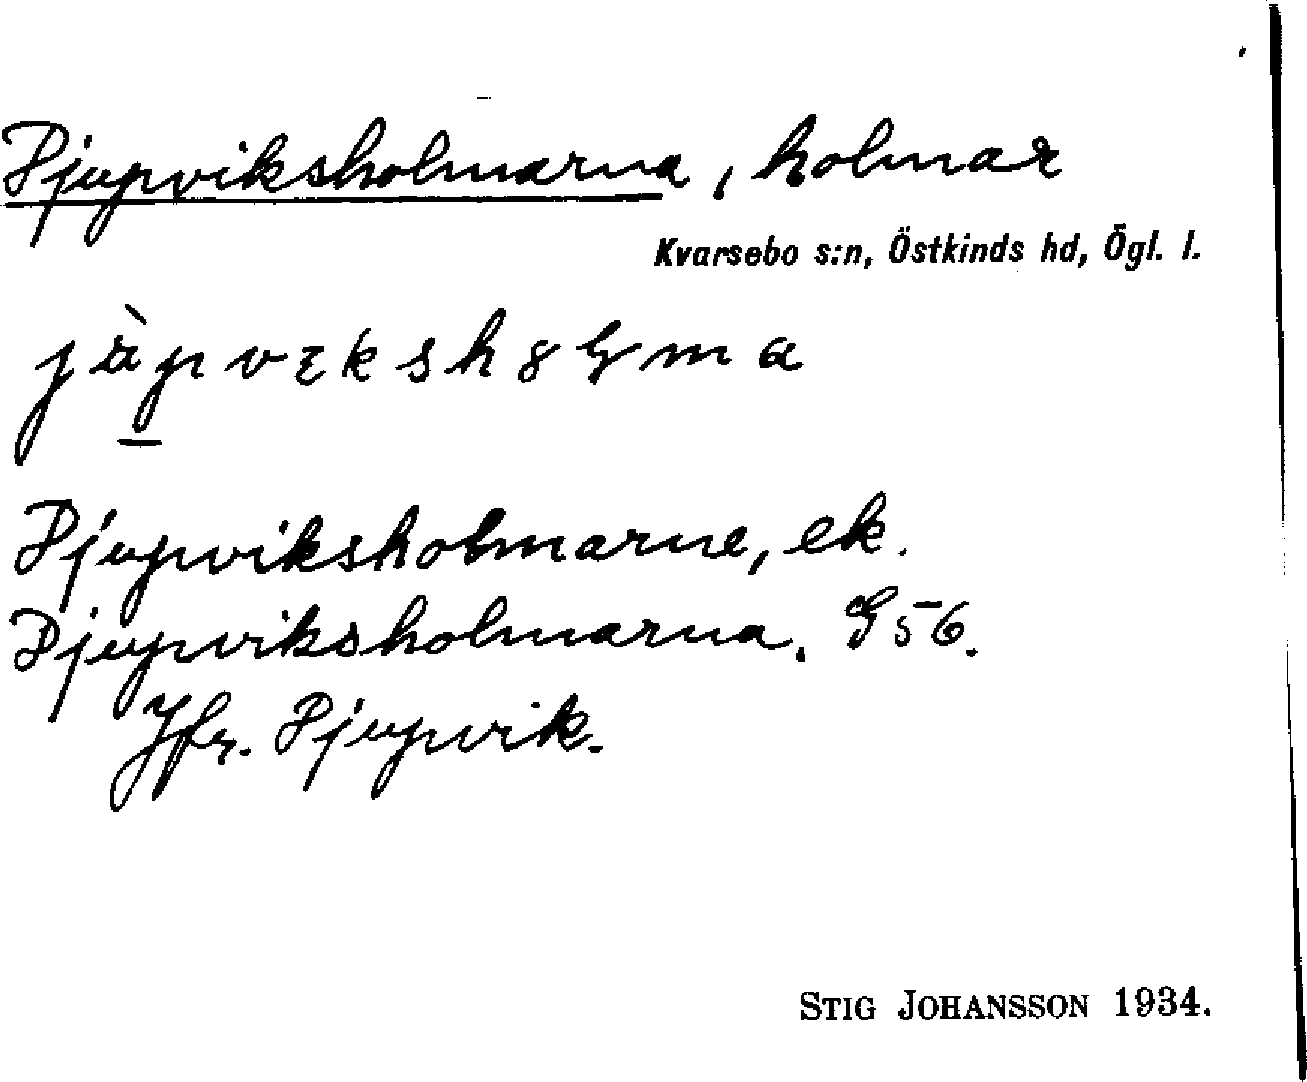 Djupviksholmarna, holmar
Kvarsebo s:n, Östkinds hd, Ögl. l.
Djupviksholmarne, ek.
Djupviksholmarna. G 56.
Jfr. Djupvik.
STIG JOHANSSON 1934.